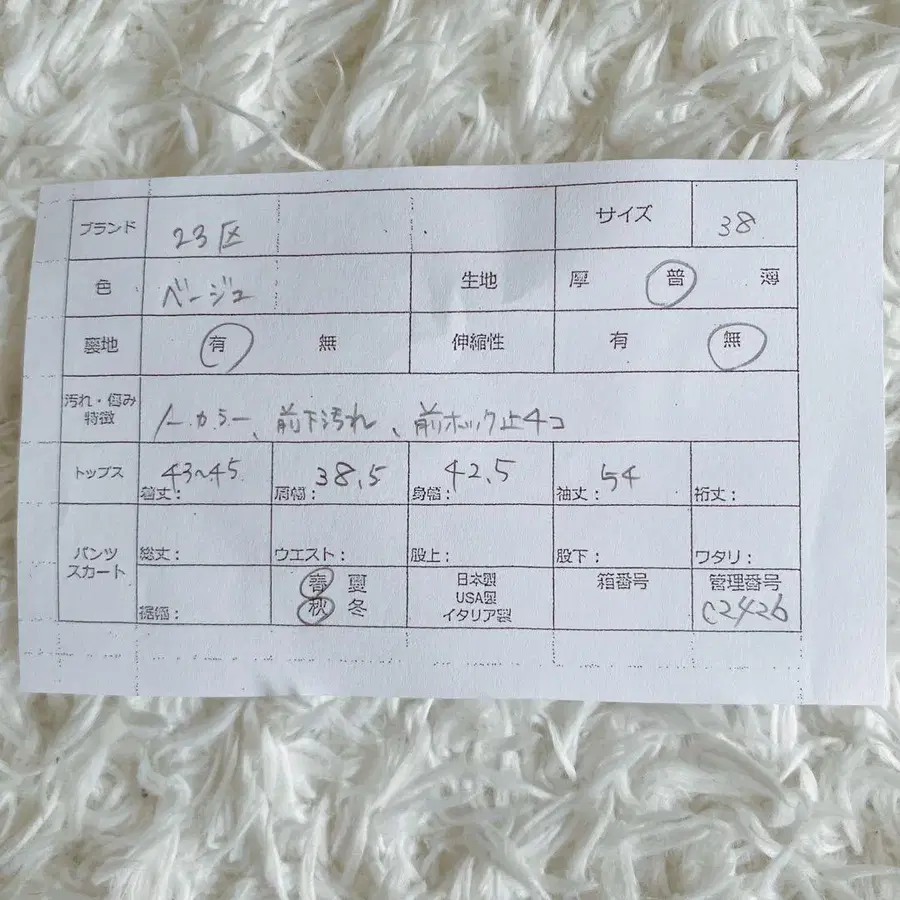 ブランド 23区 サイズ 38
色 ベージュ 生地 厚 普 薄
裏地 有 無 伸縮性 有 無
汚れ・傷み
特徴
ノーカラー、前下汚れ、前ホック止4コ
トップス 着丈: 43~45 肩幅: 38.5 身幅: 42.5 袖丈: 54 裄丈:
パンツ
スカート
総丈: ウエスト: 股上: 股下: ワタリ:
裾幅: 春 夏 日本製 箱番号 管理番号
秋 冬 USA製 C2426
イタリア製